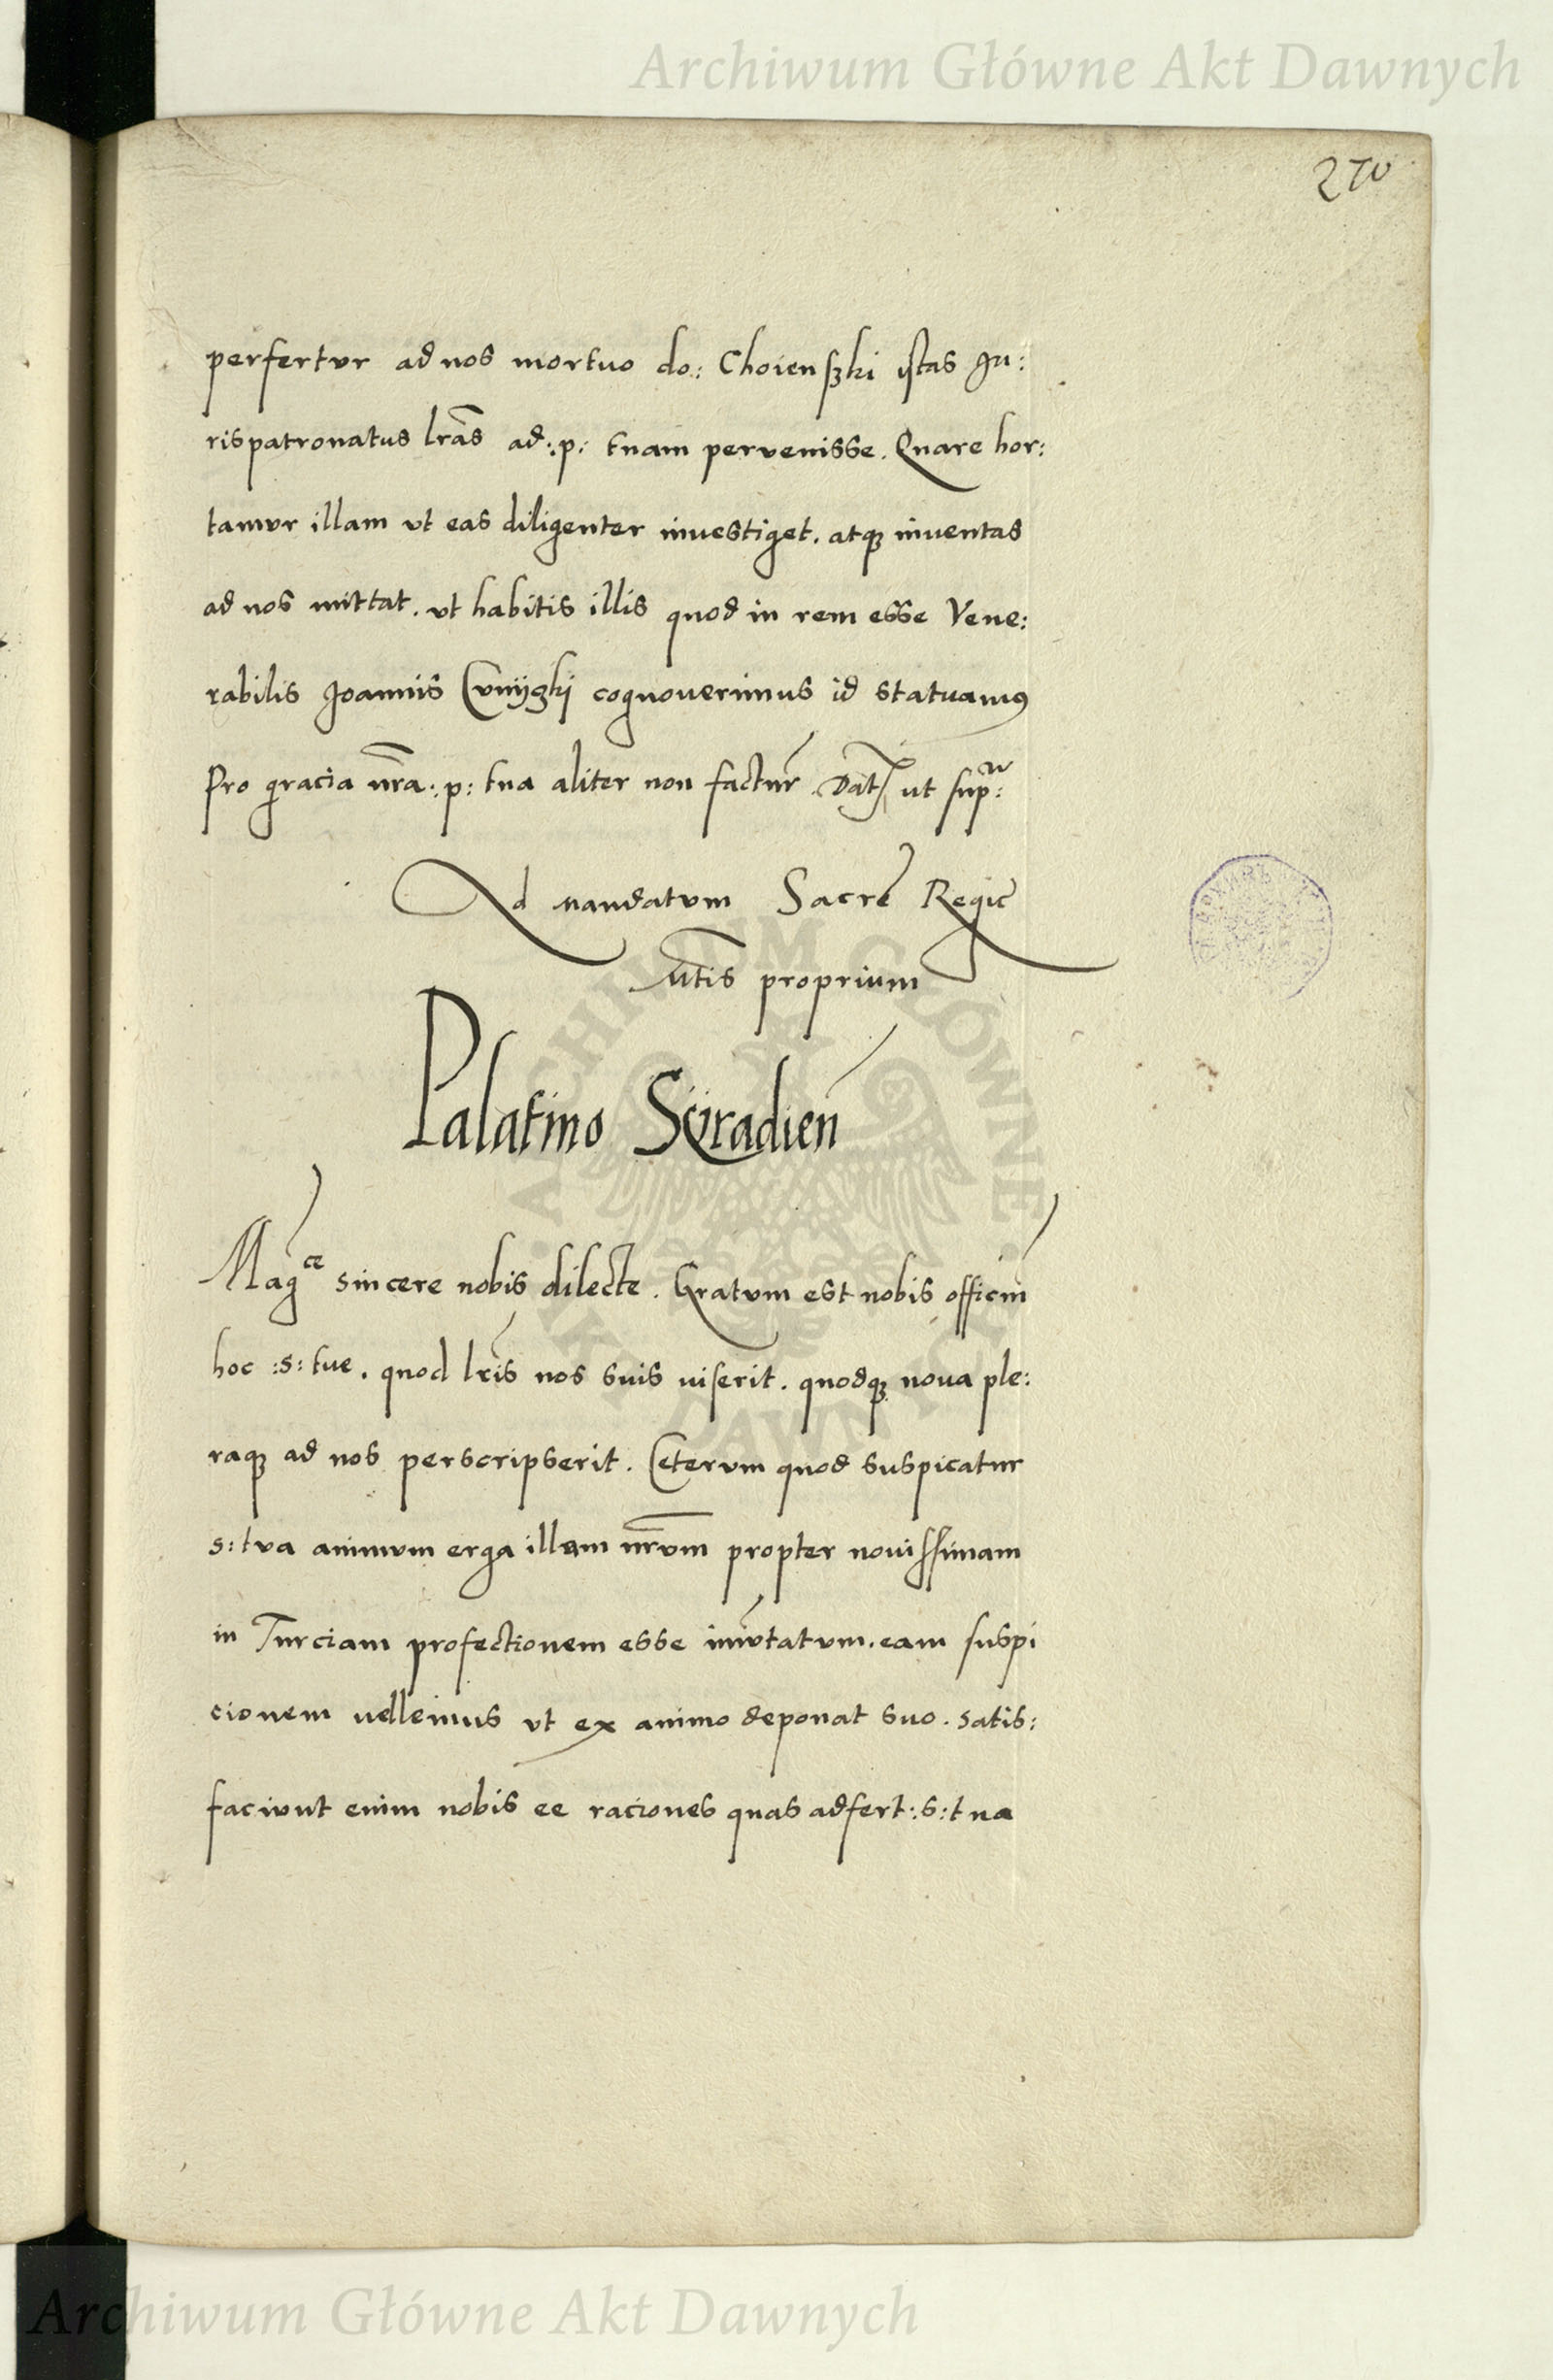 Archiwum Główne Akt Dawnych
270
perfertur ad nos mortuo do: Choienszki istas Ju:
rispatronatus lras ad :p: tuam pervenisse. Quare hor:
tamur illam ut eas diligenter investiget. atq inventas
ad nos mittat. ut habitis illis quod in rem esse Vene:
rabilis Joannis cognoverimus id statuamus
Pro gracia nra :p: tua aliter non factur. Dat ut sup:
Ad mandatum Sacre Regie
Mtis proprium
Palatino Siradien
Mag ce sincere nobis dilecte. Gratum est nobis officiu
hoc :s: tue. quod lris nos suis viserit. quodq nova ple:
raq ad nos perscripserit. Ceterum quod suspicatur
s: tua animum erga illam nrum propter novissimam
in Turciam profectionem esse imutatum. eam suspi
cionem vellemus ut ex animo deponat suo. satis:
faciunt enim nobis ee raciones quas adfert :s: tua
ARCHIWUM GŁÓWNE AKT DAWNYCH
Archiwum Główne Akt Dawnych